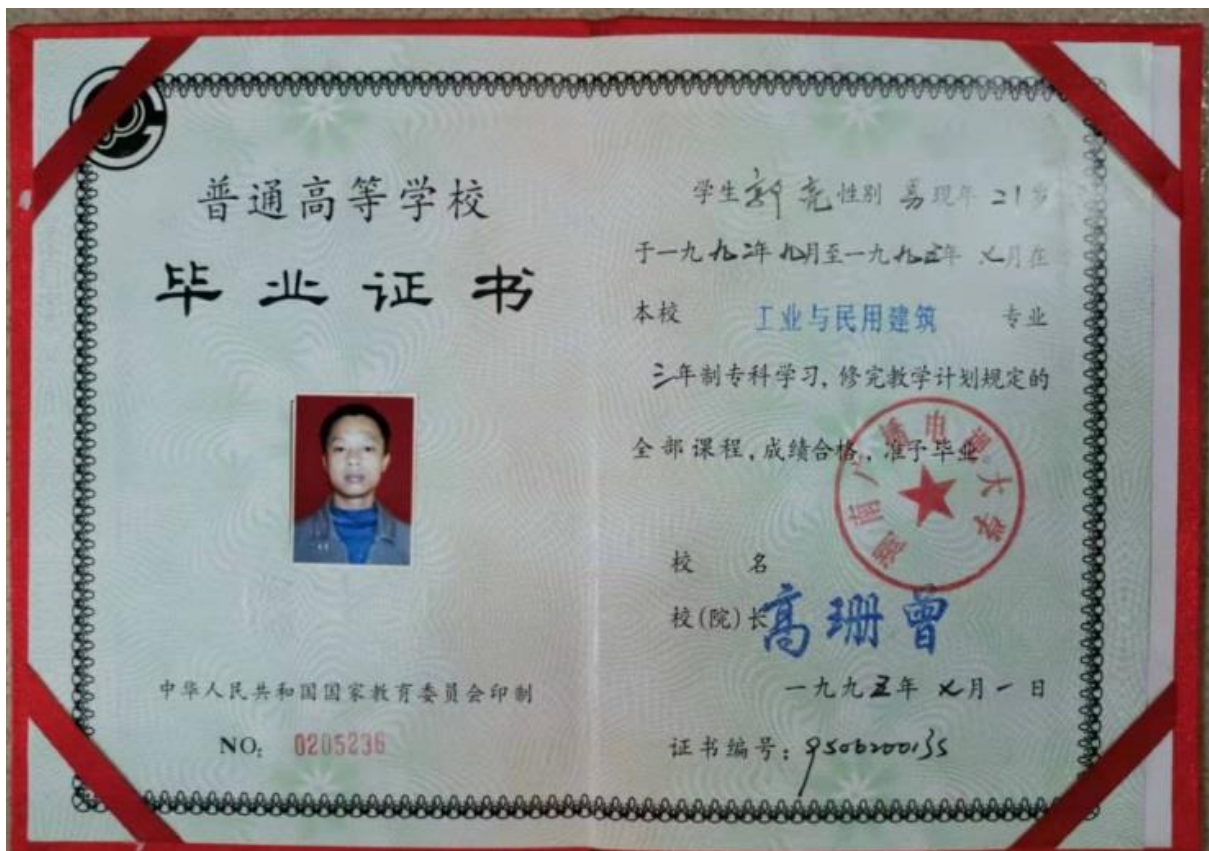 普通高等学校
毕业证书
中华人民共和国国家教育委员会印制
NO: 0205236
学生 郭亮 性别 男 现年 21 岁
于一九九二年九月至一九九五年 七月在
本校 工业与民用建筑 专业
三年制专科学习,修完教学计划规定的
全部课程,成绩合格,准予毕业。
湖南广播电视大学
校 名
校(院)长 高珊曾
一九九五年 七月一日
证书编号: 9506200135